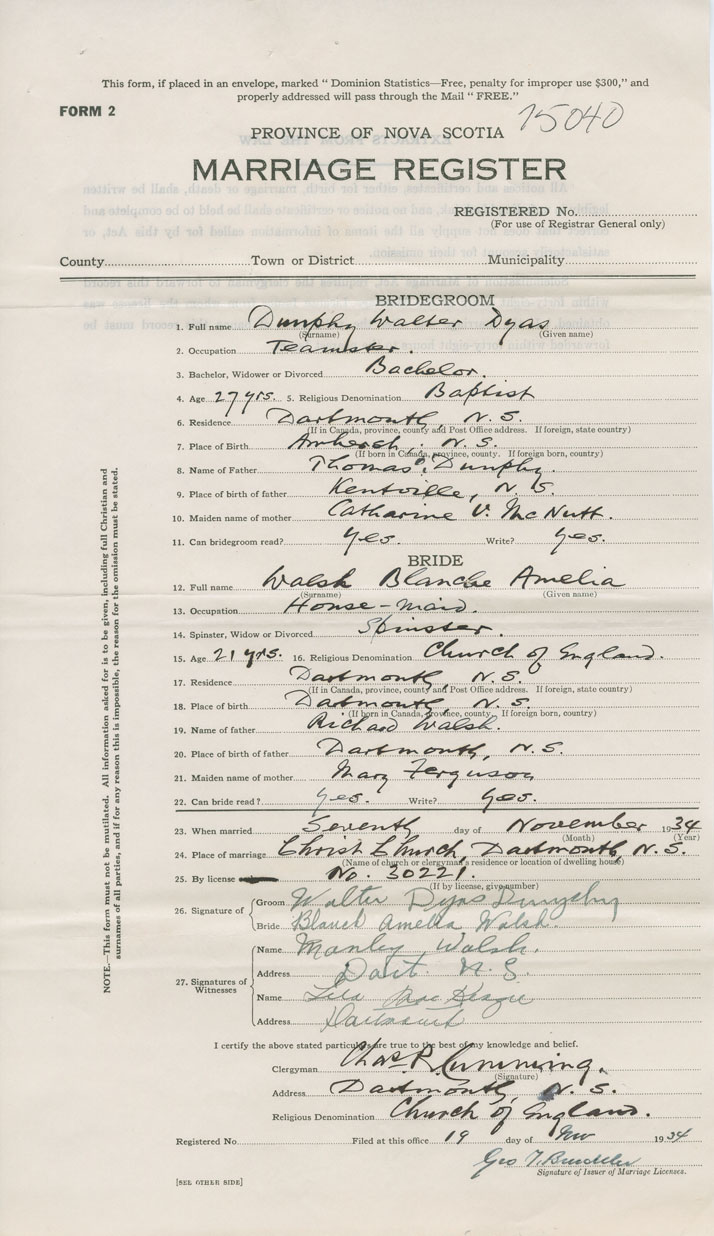 This form, if placed in an envelope, marked " Dominion Statistics—Free, penalty for improper use $300," and
properly addressed will pass through the Mail " FREE."
FORM 2
15040
PROVINCE OF NOVA SCOTIA
MARRIAGE REGISTER
REGISTERED No.
(For use of Registrar General only)
County Town or District Municipality
BRIDEGROOM
1. Full name Dunphy Walter Dyas
(Surname) (Given name)
2. Occupation Teamster.
3. Bachelor, Widower or Divorced Bachelor.
4. Age 27 yrs. 5. Religious Denomination Baptist
6. Residence Dartmouth, N. S.
(If in Canada, province, county and Post Office address. If foreign, state country)
7. Place of Birth Amherst, N. S.
(If born in Canada, province, county. If foreign born, country)
8. Name of Father Thomas Dunphy.
9. Place of birth of father Kentville, N. S.
10. Maiden name of mother Catharine V. McNutt.
11. Can bridegroom read? Yes. Write? Yes.
BRIDE
12. Full name Walsh Blanche Amelia
(Surname) (Given name)
13. Occupation House-maid.
14. Spinster, Widow or Divorced Spinster.
15. Age 21 yrs. 16. Religious Denomination Church of England.
17. Residence Dartmouth, N. S.
(If in Canada, province, county and Post Office address. If foreign, state country)
18. Place of birth Dartmouth, N. S.
(If born in Canada, province, county. If foreign born, country)
19. Name of father Richard Walsh.
20. Place of birth of father Dartmouth, N. S.
21. Maiden name of mother Mary Ferguson
22. Can bride read? Yes. Write? Yes.
23. When married Seventh day of November 1934
(Month) (Year)
24. Place of marriage Christ Church, Dartmouth, N. S.
(Name of church or clergyman's residence or location of dwelling house)
25. By license No. 30221.
(If by license, give number)
26. Signature of
Groom Walter Dyas Dunphy
Bride Blanch Amelia Walsh.
27. Signatures of Witnesses
Name Manley Walsh.
Address Dart. N. S.
Name Lila
Address Dartmouth
I certify the above stated particulars are true to the best of my knowledge and belief.
Clergyman Chas. R. Cumming.
(Signature)
Address Dartmouth, N. S.
Religious Denomination Church of England.
Registered No. Filed at this office 19 day of Nov 1934
Geo
Signature of Issuer of Marriage Licenses.
[SEE OTHER SIDE]
NOTE.—This form must not be mutilated. All information asked for is to be given, including full Christian and
surnames of all parties, and if for any reason this is impossible, the reason for the omission must be stated.